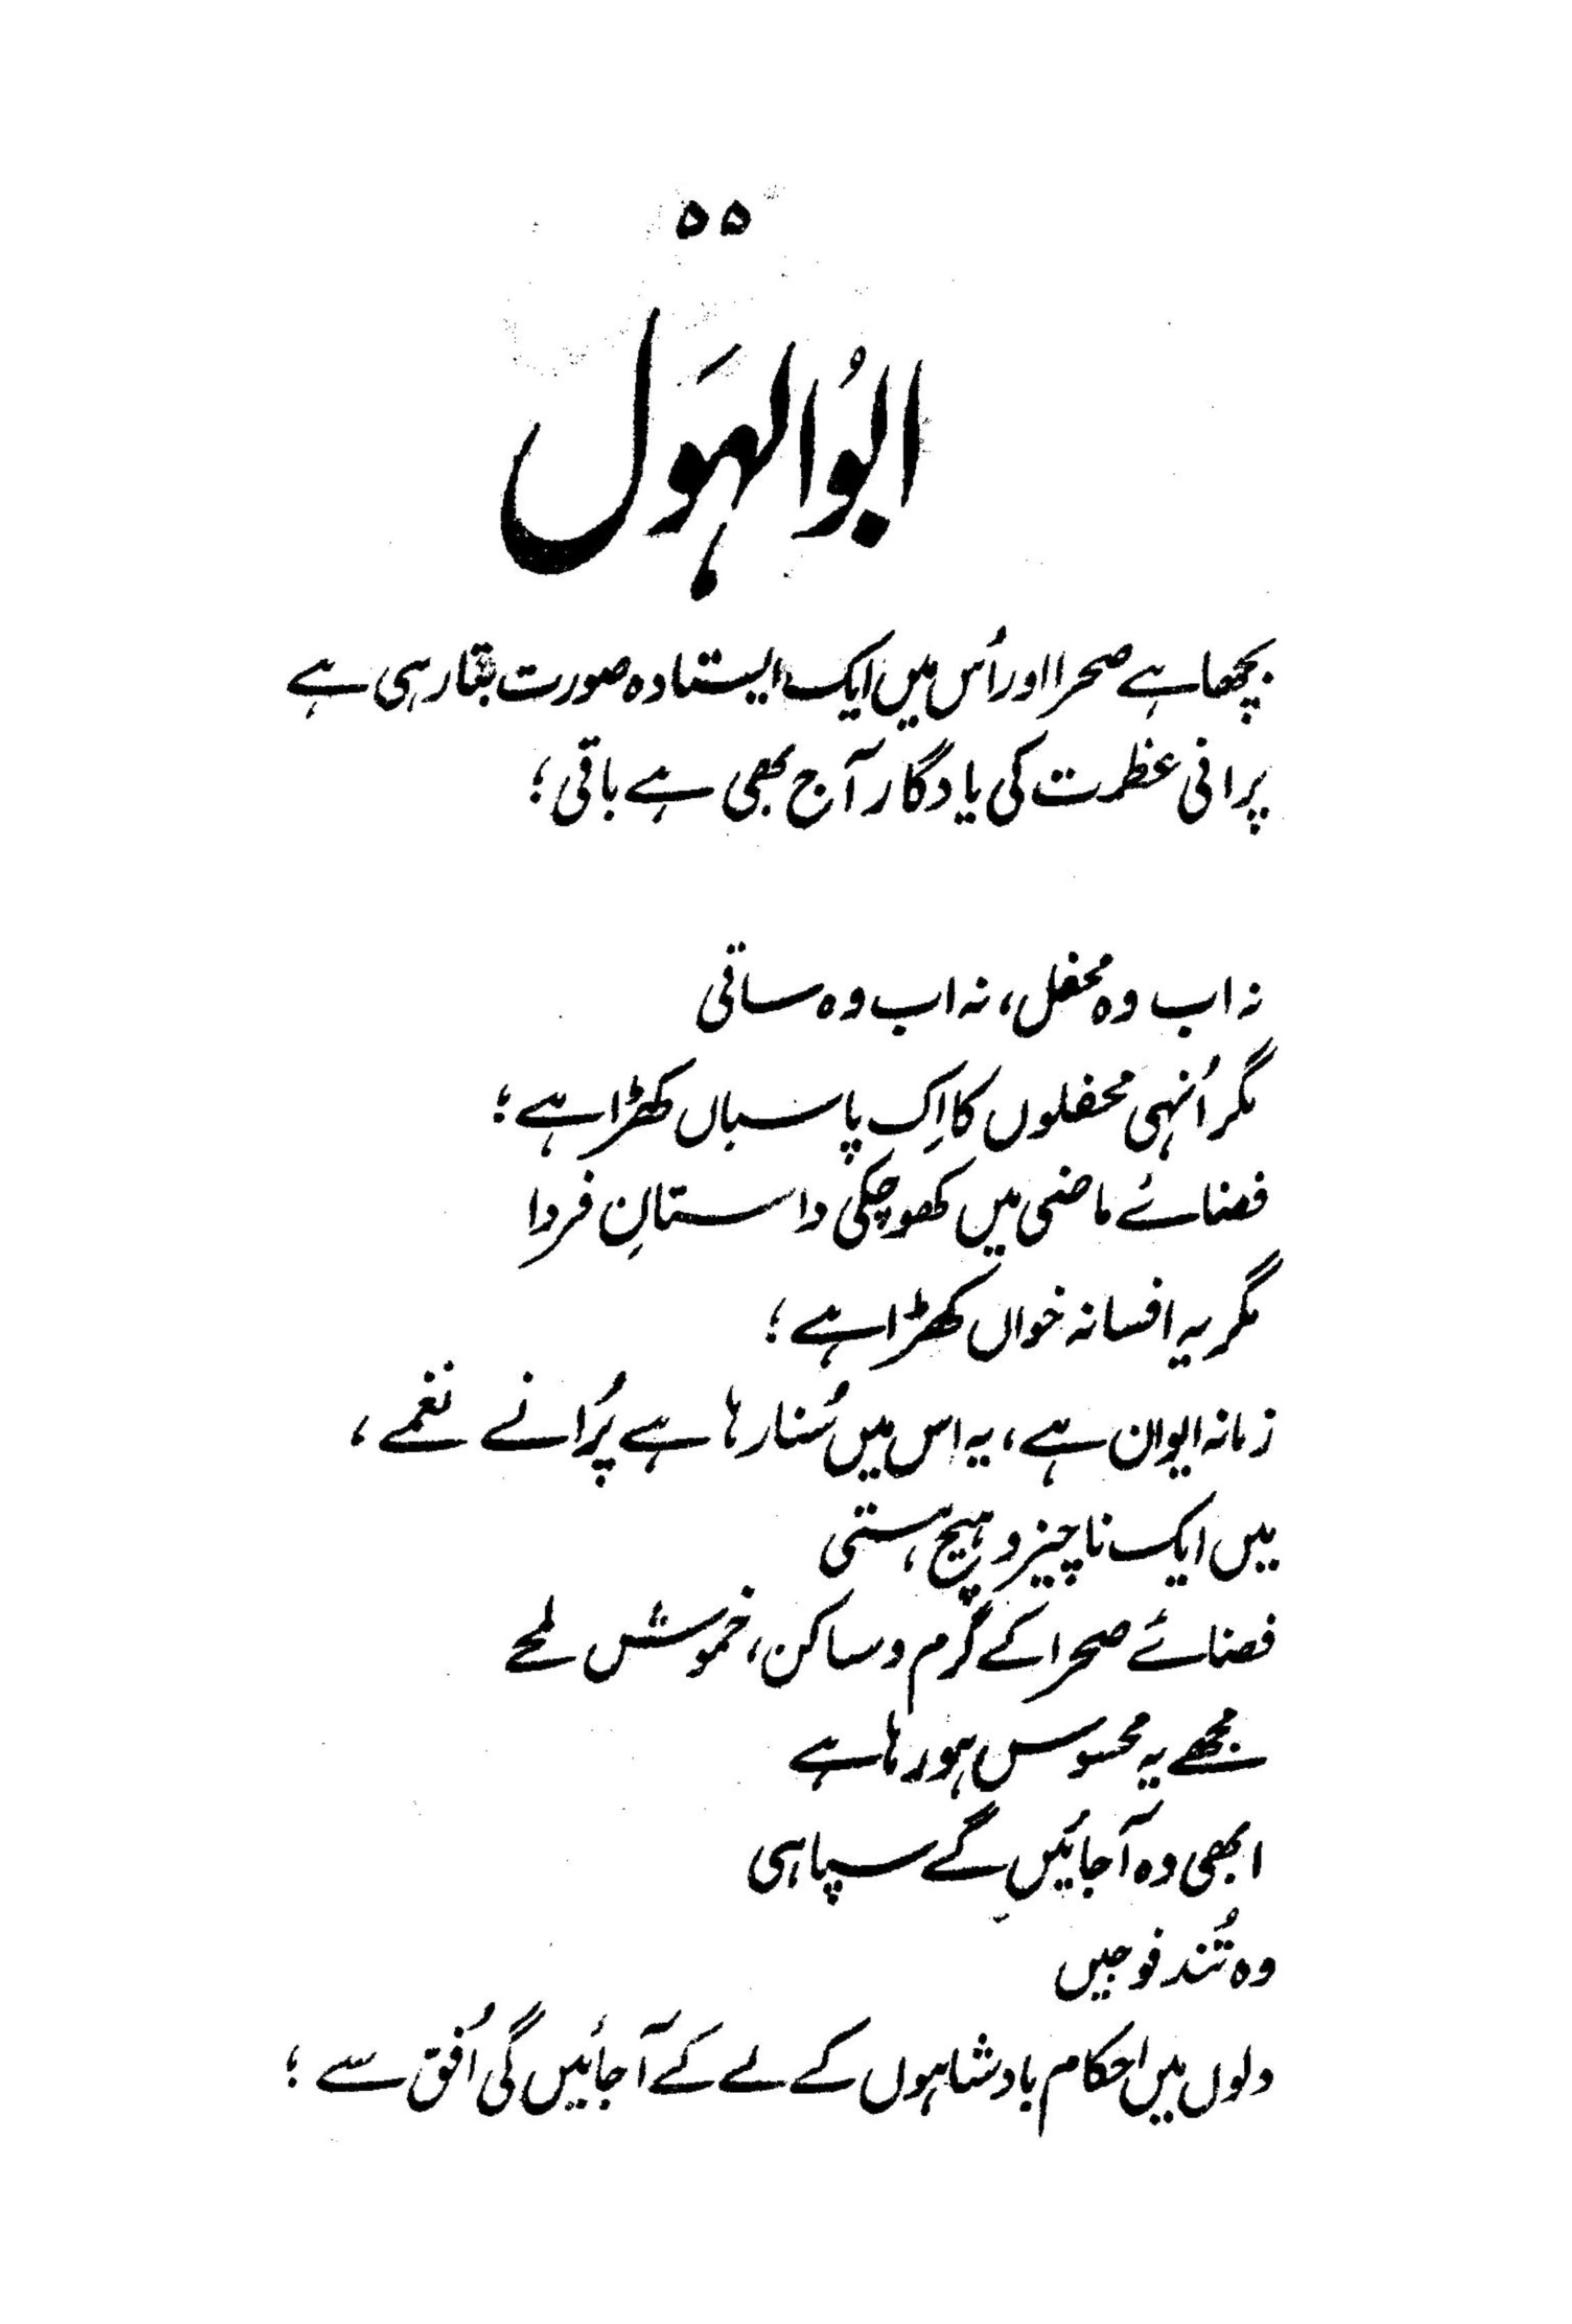 ۵۵
ابُوالہَول
بچھا ہے صحرا اور اُس میں ایک ایستادہ صورت بتا رہی ہے
پرانی عظمت کی یادگار آج بھی ہے باقی؛
نہ اب وہ محفل، نہ اب وہ ساقی
مگر اُنہی محفلوں کا اِک پاسباں کھڑا ہے؛
فضائے ماضی میں کھو چکی داستانِ فردا
مگر یہ افسانہ خواں کھڑا ہے؛
زمانہ ایوان ہے، یہ اس میں سُنا رہا ہے پُرانے نغمے،
میں ایک ناچیز و ہیچ ہستی
فضائے صحرا کے گرم و ساکن، خموش لمحے
مجھے یہ محسوس ہو رہا ہے
ابھی وہ آ جائیں گے سپاہی
وہ تُند فوجیں
دلوں میں احکام بادشاہوں کے لے کے آ جائیں گی اُفق سے؛